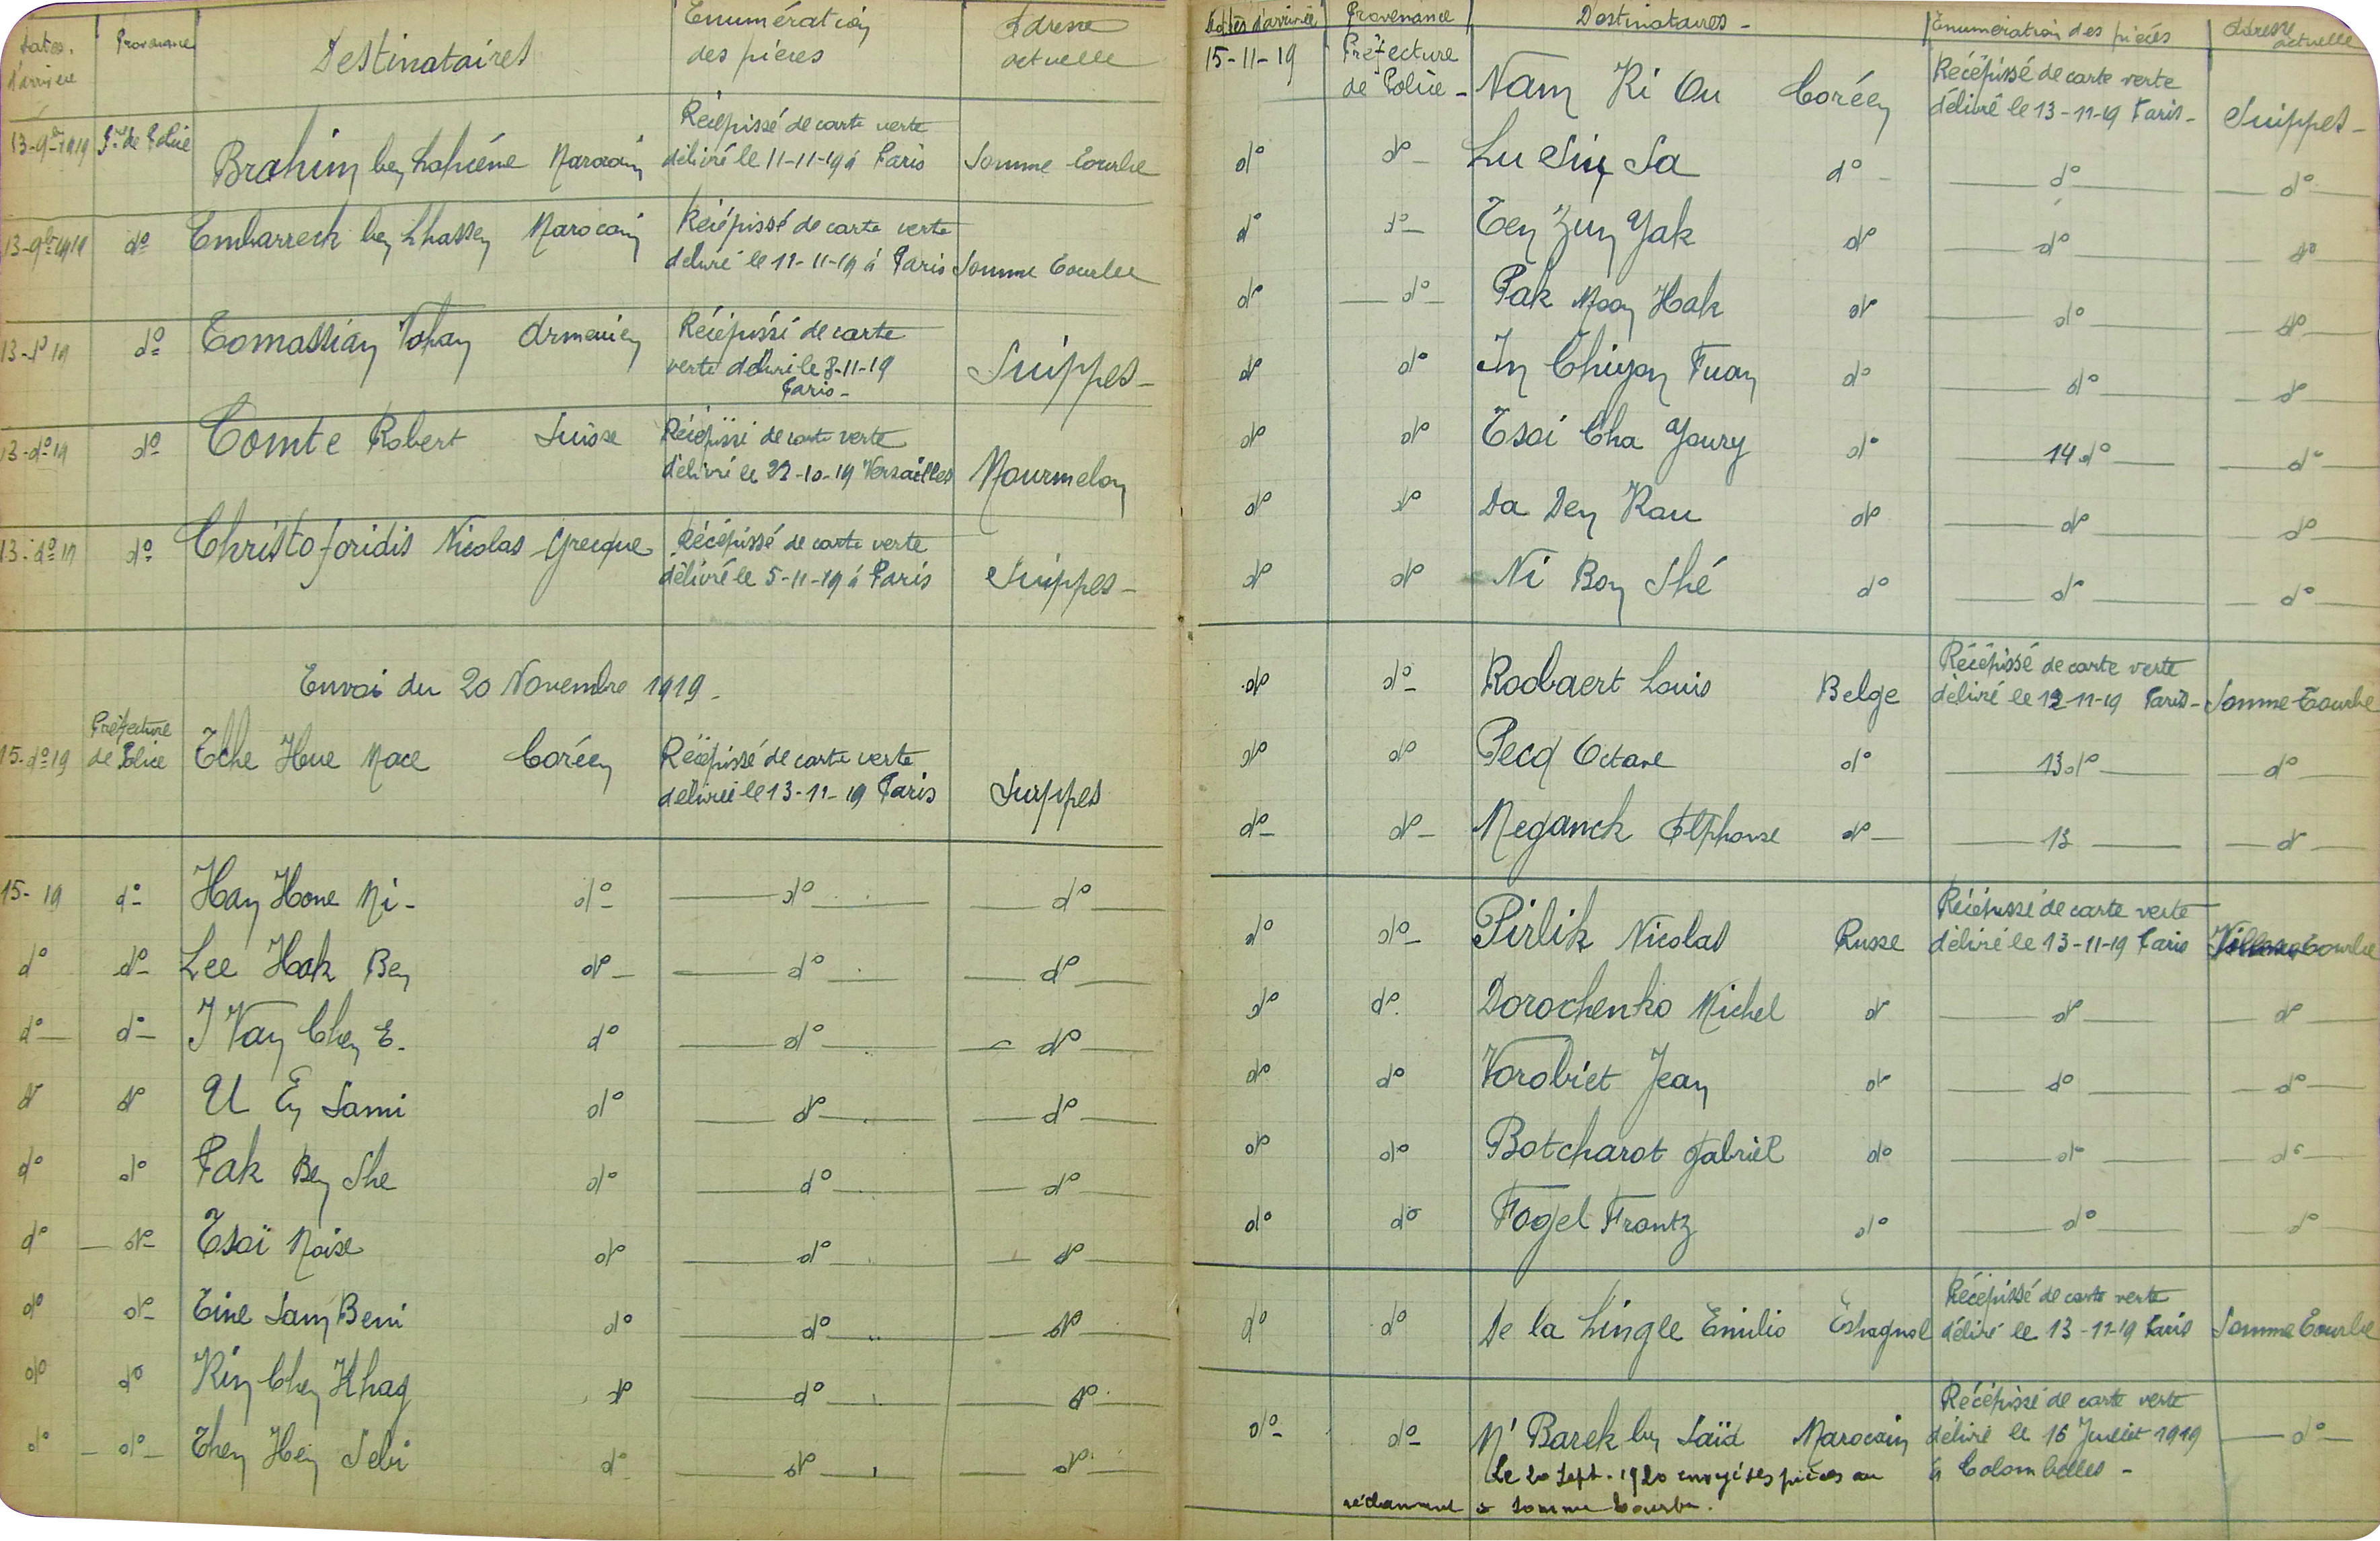 Dates d'arrivée | Provenance | Destinataires | Enumération des pièces | Adresse actuelle
13-9bre-1919 | Pre de Police | Brahim ben Lahcéne Marocain | Récépissé de carte verte délivré le 11-11-19 à Paris | Somme Tourbe
13-9bre 1919 | do | Embarreck ben Lhassen Marocain | Récépissé de carte verte délivré le 11-11-19 à Paris | Somme Tourbe
13-do 19 | do | Tomassian Vohan Armenien | Récépissé de carte verte délivri le 8-11-19 Paris- | Suippes-
13-do 19 | do | Comte Robert Suisse | Récépissé de carte verte délivré le 22-10-19 Versailles | Mourmelon
13-do 19 | do | Christoforidis Nicolas Grecque | Récépissé de carte verte délivré le 5-11-19 à Paris | Suippes-
Envoi du 20 Novembre 1919-
15-do 19 | Préfecture de Police | Tche Hue Mace Coréen | Récépissé de carte verte délivrée le 13-11-19 Paris | Suppes
15- 19 | do | Han Hone Ni- do | do | do
do | do | Lee Hak Ben do | do | do
do | do | I Van Chen E. do | do | do
do | do | U En Sami do | do | do
do | do | Pak Ben She do | do | do
do | do | Tsoï Noise do | do | do
do | do | Tine Sam Beni do | do | do
do | do | Kim Chen Khag do | do | do
do | do | Then Hein Sebi do | do | do
Dates d'arrivée | Provenance | Destinataires- | Enumération des pièces | Adresse actuelle
15-11-19 | Préfecture de Police- | Nam Ki Ou Coréen | Récépissé de carte verte délivré le 13-11-19 Paris- | Suippes-
do | do | Lu Sin Sa do | do | do
do | do | Ten Zun Yak do | do | do
do | do | Pak Moon Hak do | do | do
do | do | In Chiyon Fuan do | do | do
do | do | Tsoi Cha Youry do | 14 do | do
do | do | Da Den Kau do | do | do
do | do | Ni Bon Shé do | do | do
do | do | Roobaert Louis Belge | Récépissé de carte verte délivré le 12-11-19 Paris- | Somme-Tourbe
do | do | Pecq Octave do | 13 do | do
do | do | Meganck Alphonse do | 13 | do
do | do | Pirlik Nicolas Russe | Récépissé de carte verte délivré le 13-11-19 Paris | Tourbe
do | do | Dorochenko Michel do | do | do
do | do | Vorobiet Jean do | do | do
do | do | Botcharot Gabriel do | do | do
do | do | Fogel Frantz do | do | do
do | do | De la Lingle Emilio Espagnol | Récépissé de carte verte délivré le 13-11-19 Paris | Somme Tourbe
do | do | M'Barek ben Saïd Marocain | Récépissé de carte verte délivré le 16 Juillet 1919 à Colombelles- | do
Le 20 Sept. 1920 envoyé ses pièces au
réclamant à Somme Tourbe.